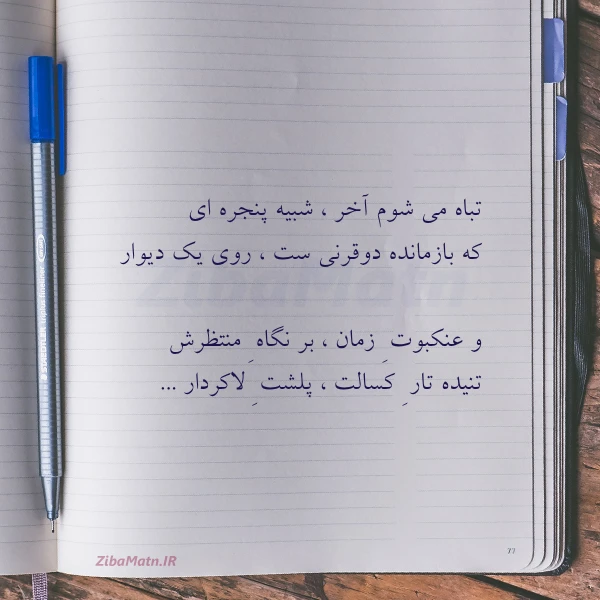 تباه می شوم آخر ، شبیه پنجره ای
که بازمانده دوقرنی ست ، روی یک دیوار
و عنکبوت ِ زمان ، بر نگاه ِ منتظرش
تنیده تار ِ کسالت ، پلشت ِ لاکردار ...
77
ZibaMatn.IR